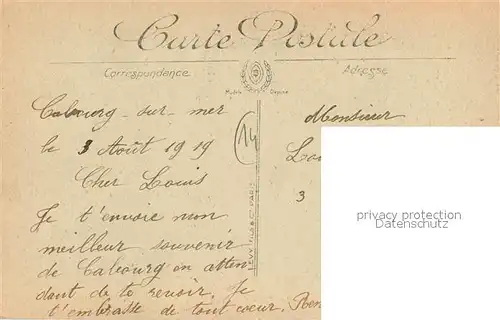 Carte Postale
Correspondance
Adresse
Modèle Déposé
Cabourg - sur - mer
le 3 Août 1919
Cher Louis
Je t'envoie mon
meilleur souvenir
de Cabourg en atten
dant de te revoir. Je
t'embrasse de tout coeur,
14
Monsieur
3
privacy protection
Datenschutz